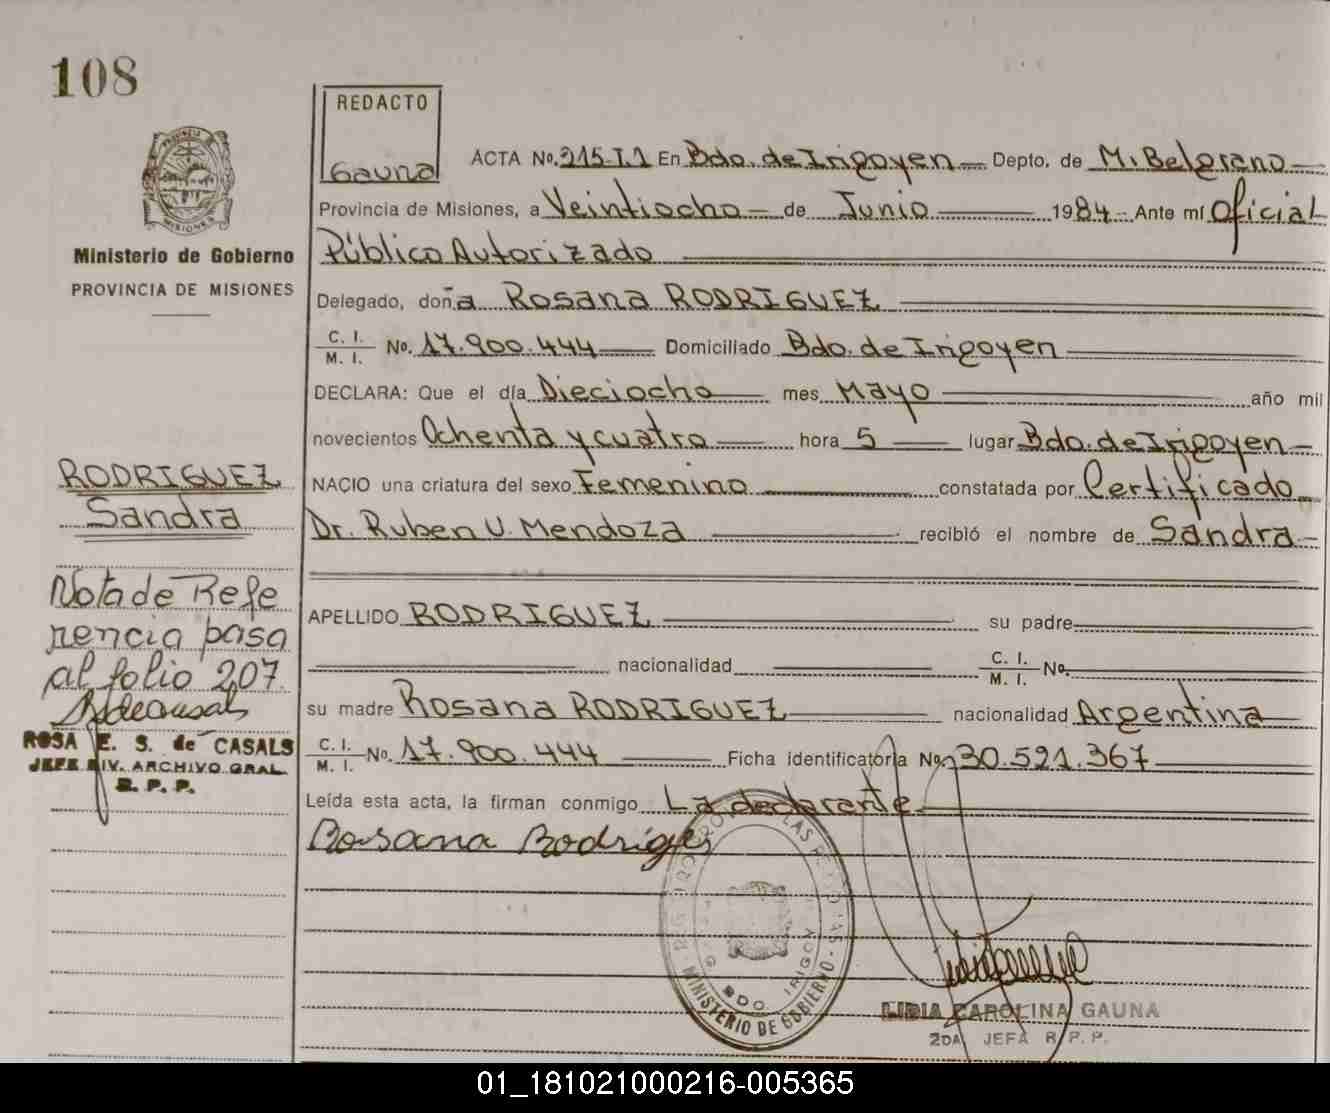 108
REDACTO
Gauna
Ministerio de Gobierno
PROVINCIA DE MISIONES
ACTA No. 215.T.1 En Bdo. de Irigoyen Depto. de M. Belgrano
Provincia de Misiones, a Veintiocho de Junio 1984 Ante mí Oficial
Público Autorizado
Delegado, doña Rosana RODRIGUEZ
C. I.
M. I. No. 17.900.444 Domiciliado Bdo. de Irigoyen
DECLARA: Que el día Dieciocho mes Mayo año mil
novecientos Ochenta y cuatro hora 5 lugar Bdo. de Irigoyen
NACIO una criatura del sexo Femenino constatada por Certificado
Dr. Ruben U. Mendoza recibió el nombre de Sandra
APELLIDO RODRIGUEZ su padre
nacionalidad C. I.
M. I. No.
su madre Rosana RODRIGUEZ nacionalidad Argentina
C. I.
M. I. No. 17.900.444 Ficha identificatoria No. 30.521.367
Leída esta acta, la firman conmigo La declarante
Rosana Rodrigues
RODRIGUEZ
Sandra
Nota de Refe
rencia pasa
al folio 207.
ROSA E. S. de CASALS
JEFE DIV. ARCHIVO GRAL.
R. P. P.
MINISTERIO DE GOBIERNO
BDO. IRIGOY
LIDIA CAROLINA GAUNA
2DA. JEFA R. P. P.
01_181021000216-005365